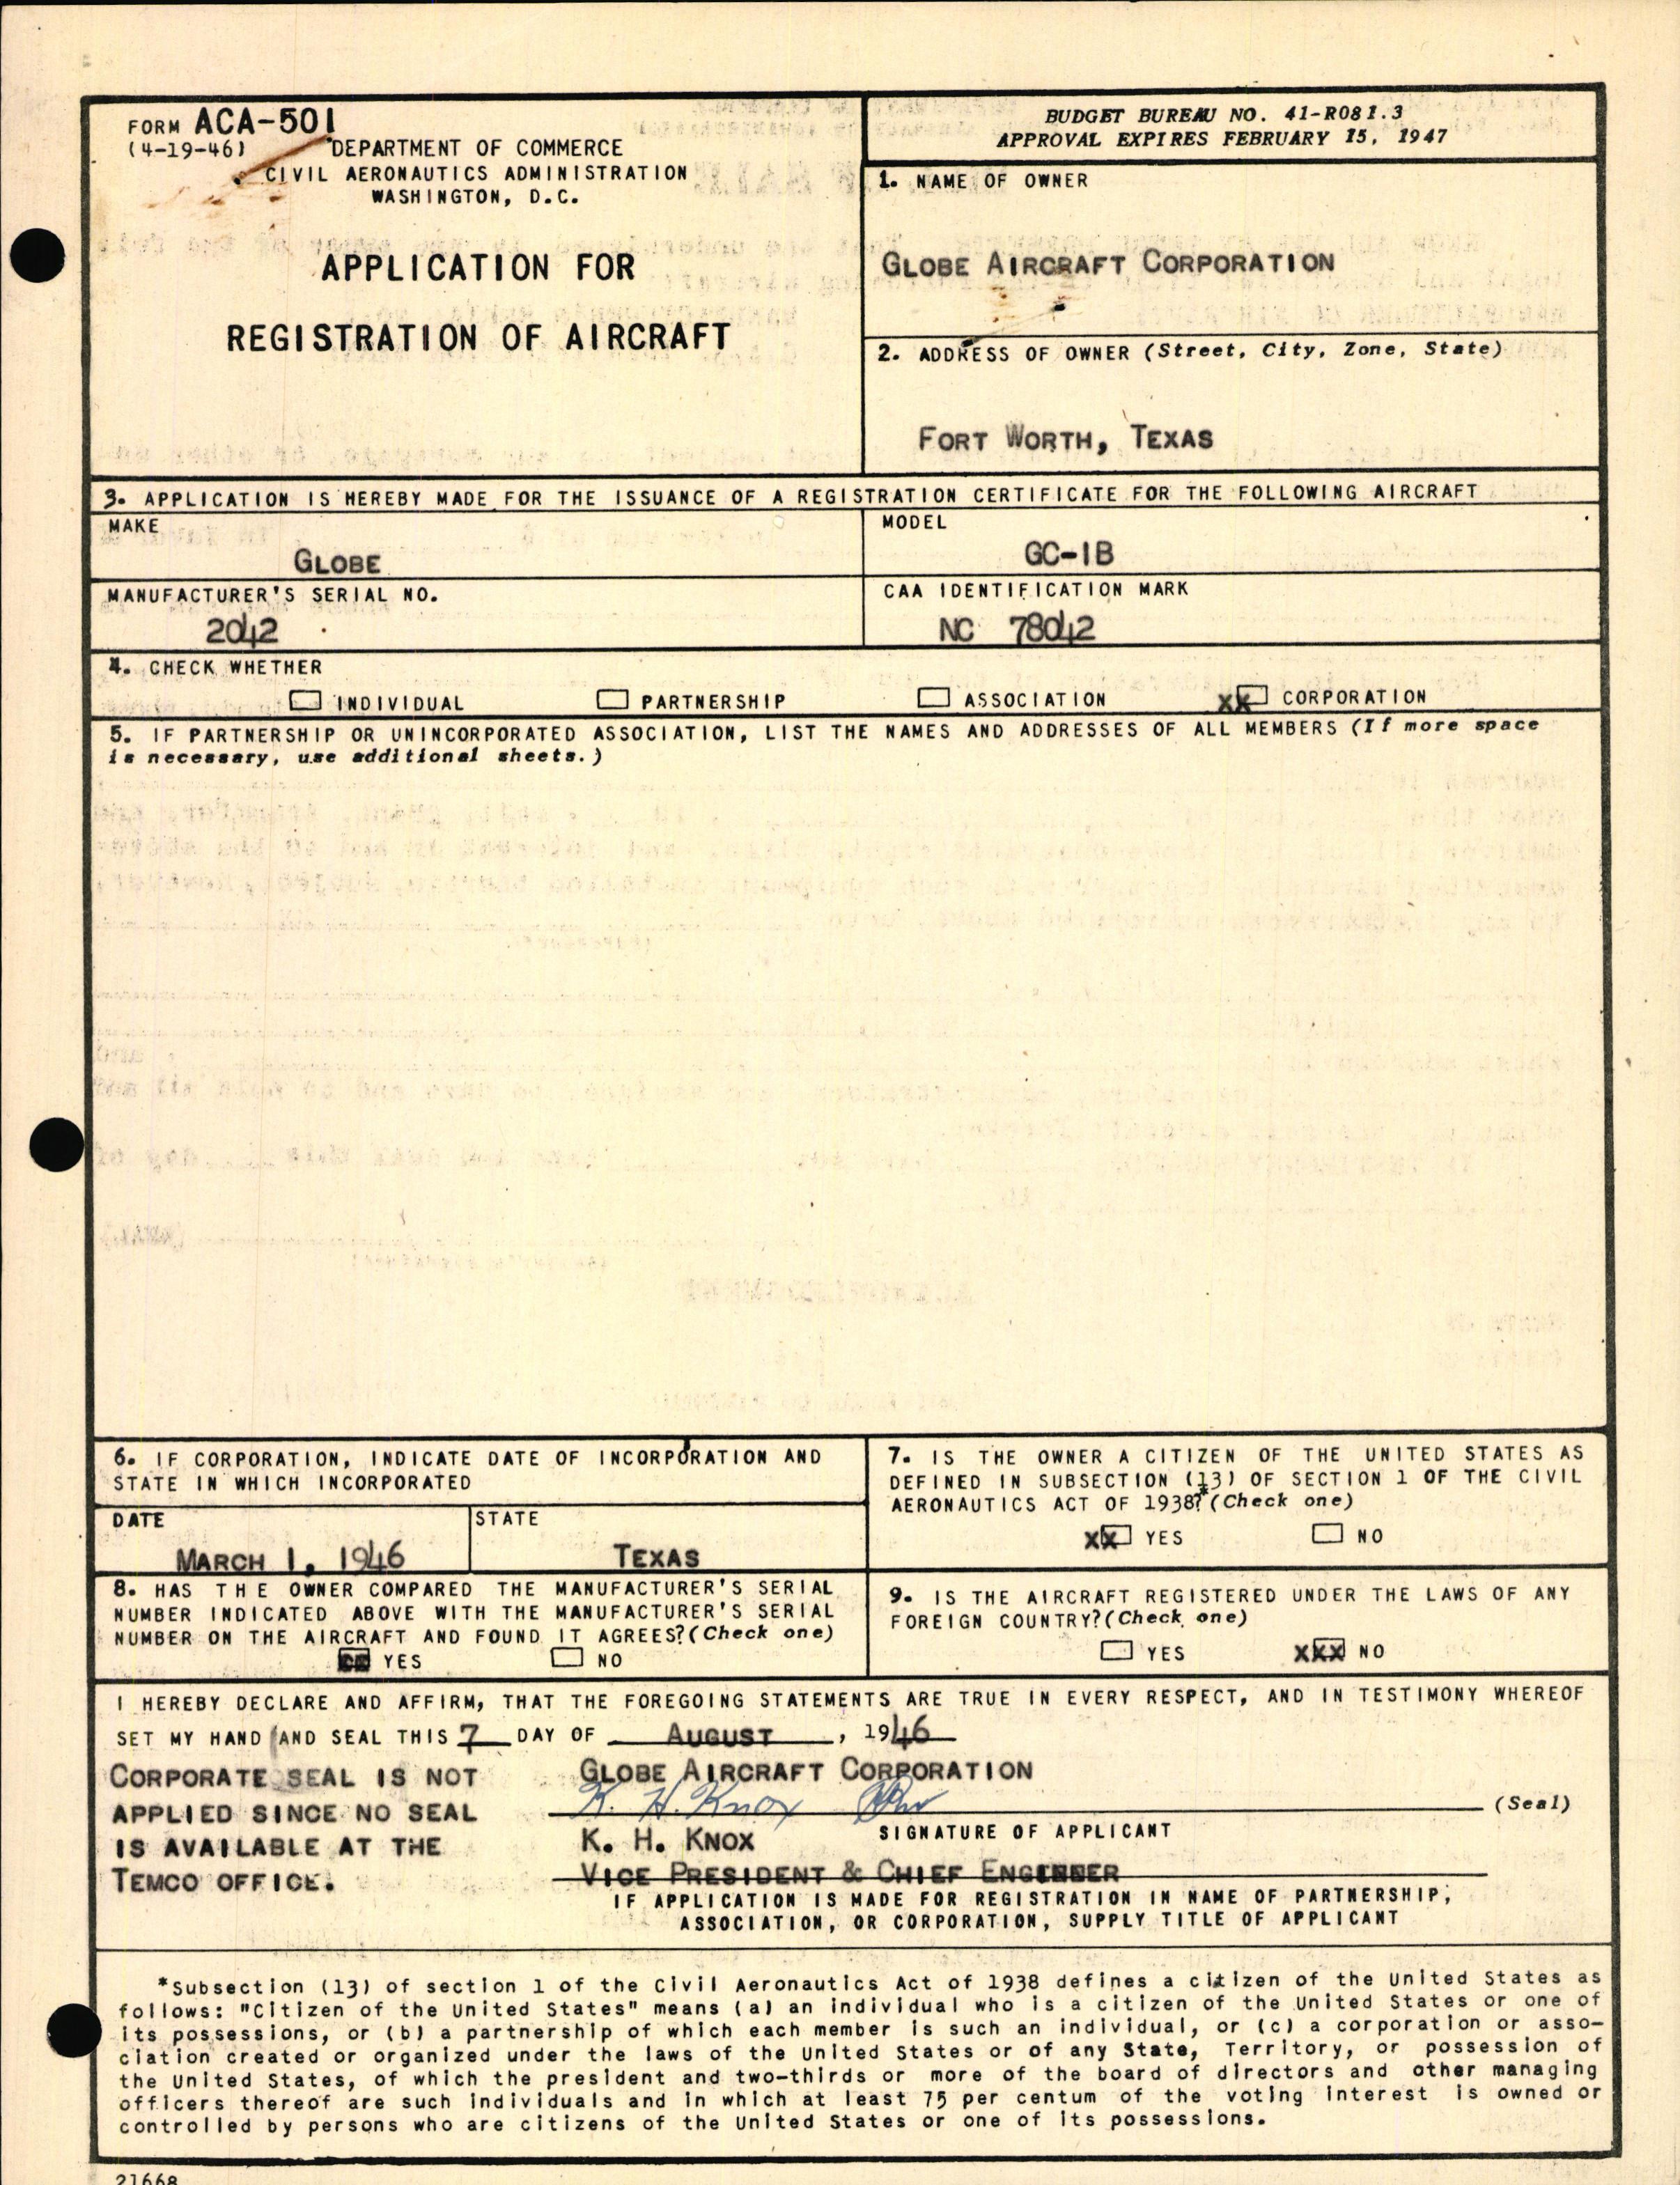 FORM ACA-501
(4-19-46)
DEPARTMENT OF COMMERCE
CIVIL AERONAUTICS ADMINISTRATION
WASHINGTON, D.C.
APPLICATION FOR
REGISTRATION OF AIRCRAFT
BUDGET BUREAU NO. 41-R081.3
APPROVAL EXPIRES FEBRUARY 15, 1947
1. NAME OF OWNER
GLOBE AIRCRAFT CORPORATION
2. ADDRESS OF OWNER (Street, City, Zone, State)
FORT WORTH, TEXAS
3. APPLICATION IS HEREBY MADE FOR THE ISSUANCE OF A REGISTRATION CERTIFICATE FOR THE FOLLOWING AIRCRAFT
MAKE
GLOBE
MODEL
GC-1B
MANUFACTURER'S SERIAL NO.
2042
CAA IDENTIFICATION MARK
NC 78042
4. CHECK WHETHER
INDIVIDUAL PARTNERSHIP ASSOCIATION XX CORPORATION
5. IF PARTNERSHIP OR UNINCORPORATED ASSOCIATION, LIST THE NAMES AND ADDRESSES OF ALL MEMBERS (If more space
is necessary, use additional sheets.)
6. IF CORPORATION, INDICATE DATE OF INCORPORATION AND
STATE IN WHICH INCORPORATED
DATE
MARCH 1, 1946
STATE
TEXAS
7. IS THE OWNER A CITIZEN OF THE UNITED STATES AS
DEFINED IN SUBSECTION (13) OF SECTION 1 OF THE CIVIL
AERONAUTICS ACT OF 1938?* (Check one)
XX YES NO
8. HAS THE OWNER COMPARED THE MANUFACTURER'S SERIAL
NUMBER INDICATED ABOVE WITH THE MANUFACTURER'S SERIAL
NUMBER ON THE AIRCRAFT AND FOUND IT AGREES? (Check one)
YES NO
9. IS THE AIRCRAFT REGISTERED UNDER THE LAWS OF ANY
FOREIGN COUNTRY? (Check one)
YES XXX NO
I HEREBY DECLARE AND AFFIRM, THAT THE FOREGOING STATEMENTS ARE TRUE IN EVERY RESPECT, AND IN TESTIMONY WHEREOF
SET MY HAND AND SEAL THIS 7 DAY OF AUGUST, 1946
CORPORATE SEAL IS NOT
APPLIED SINCE NO SEAL
IS AVAILABLE AT THE
TEMCO OFFICE.
GLOBE AIRCRAFT CORPORATION
K. H. Knox
(Seal)
SIGNATURE OF APPLICANT
K. H. KNOX
VICE PRESIDENT & CHIEF ENGINEER
IF APPLICATION IS MADE FOR REGISTRATION IN NAME OF PARTNERSHIP,
ASSOCIATION, OR CORPORATION, SUPPLY TITLE OF APPLICANT
*Subsection (13) of section 1 of the Civil Aeronautics Act of 1938 defines a citizen of the United States as
follows: "Citizen of the United States" means (a) an individual who is a citizen of the United States or one of
its possessions, or (b) a partnership of which each member is such an individual, or (c) a corporation or asso-
ciation created or organized under the laws of the United States or of any State, Territory, or possession of
the United States, of which the president and two-thirds or more of the board of directors and other managing
officers thereof are such individuals and in which at least 75 per centum of the voting interest is owned or
controlled by persons who are citizens of the United States or one of its possessions.
21668